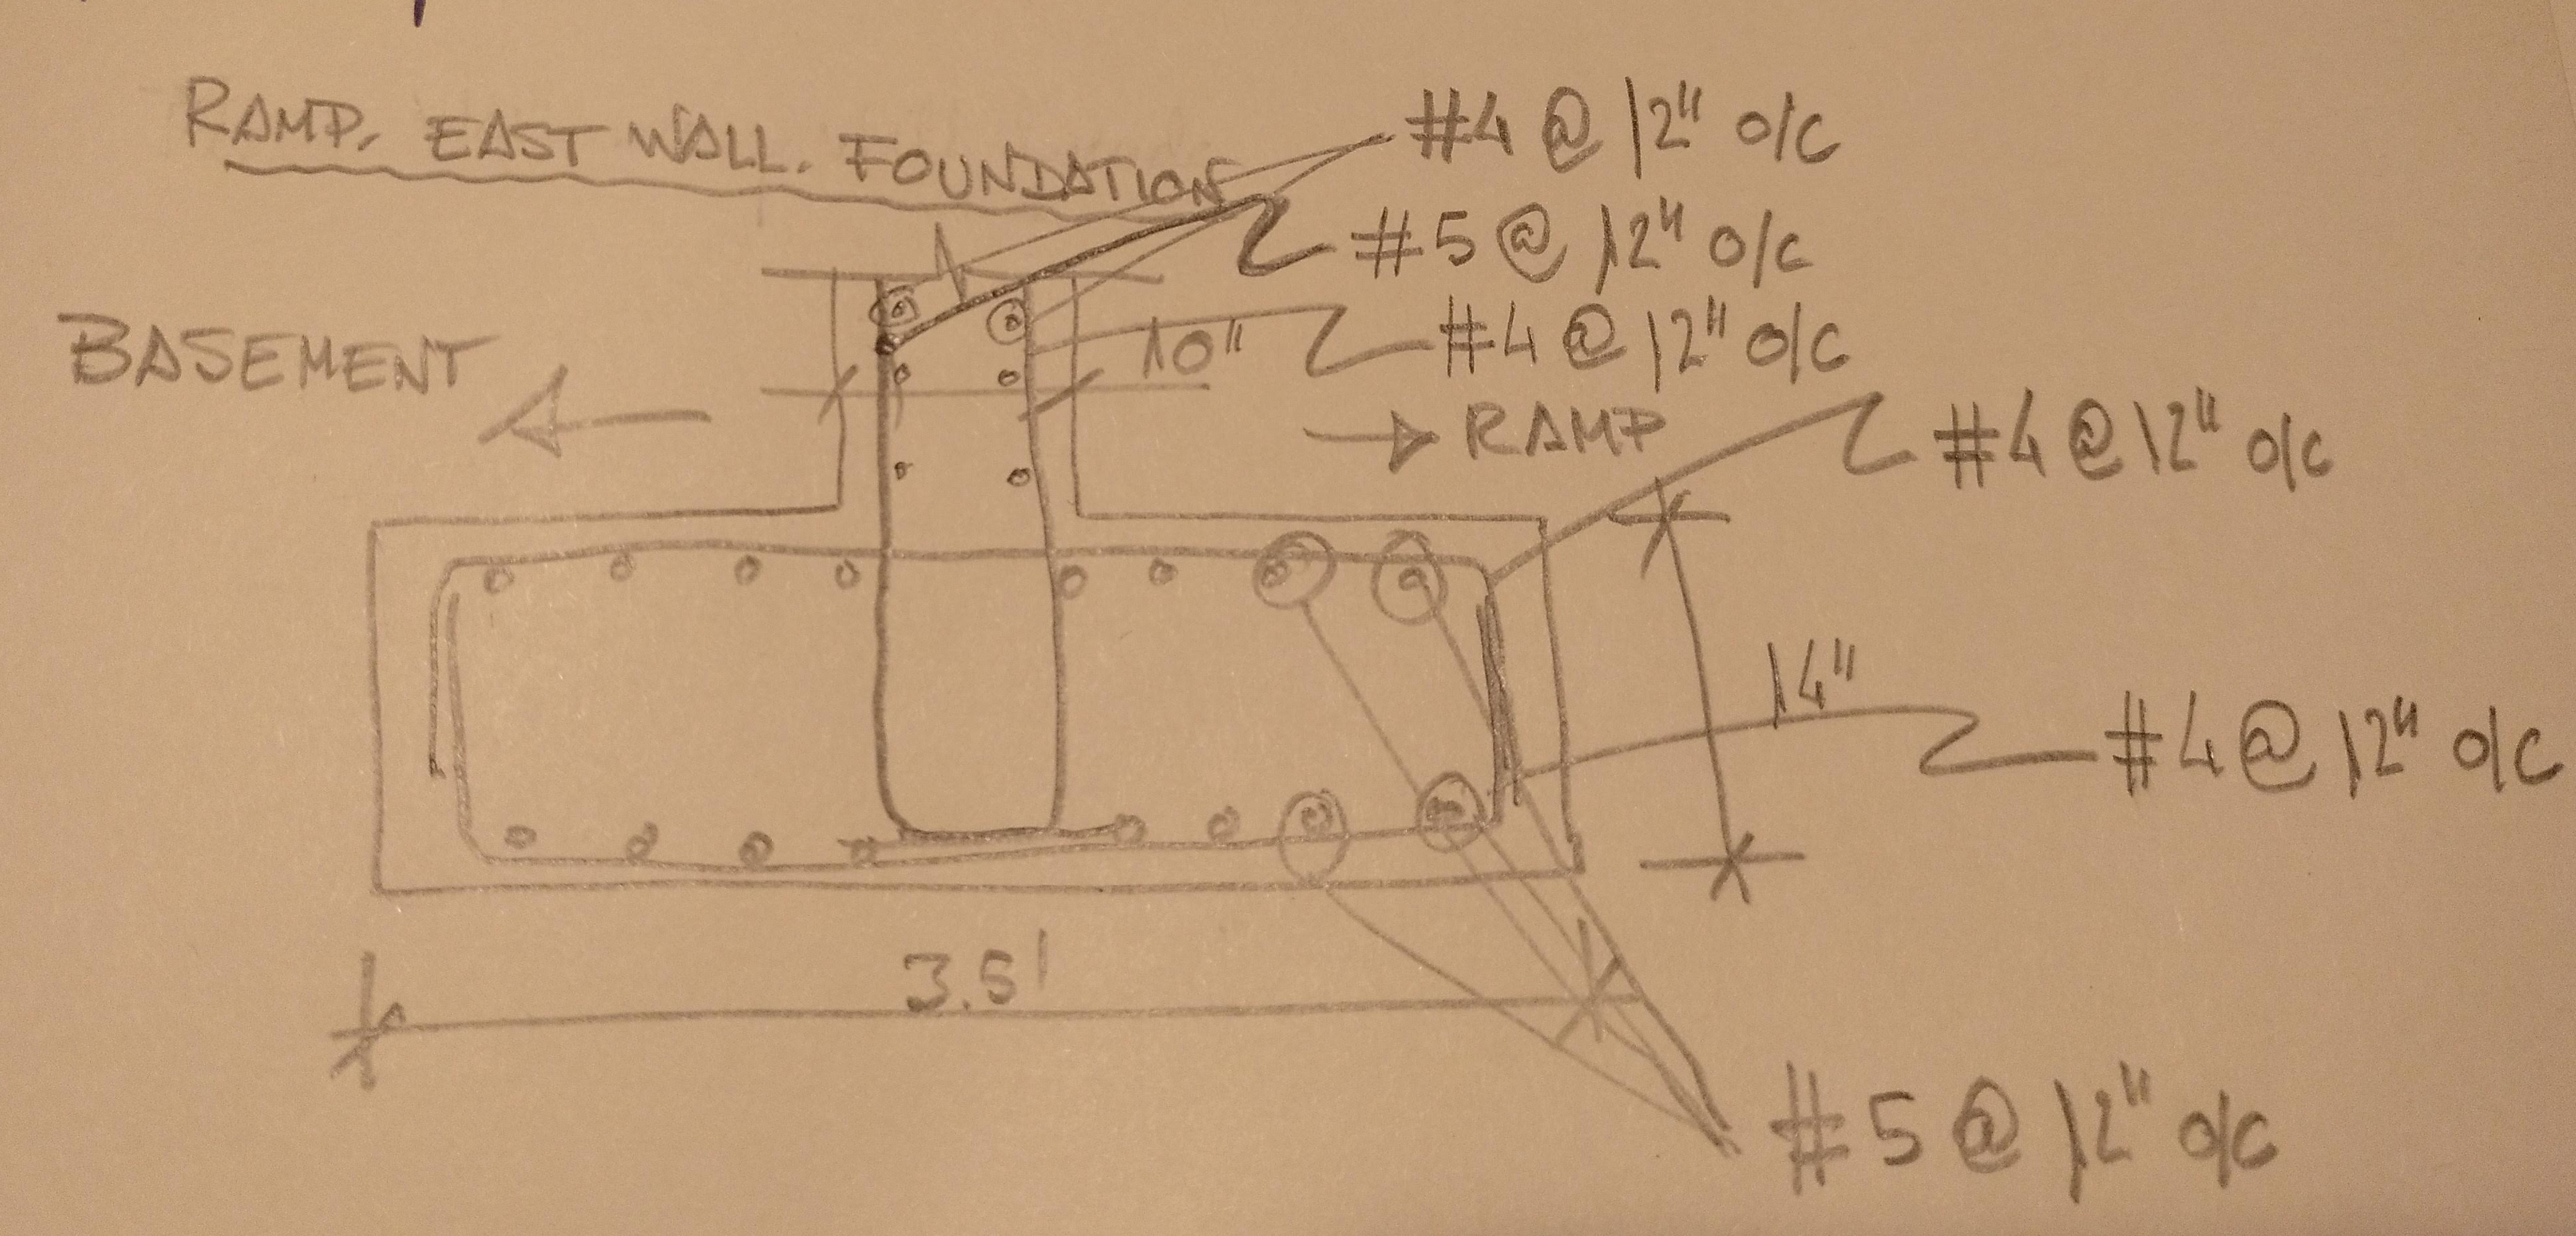 RAMP. EAST WALL. FOUNDATION
#4 @ 12" O/C
#5 @ 12" O/C
#4 @ 12" O/C
10"
BASEMENT
RAMP
#4 @ 12" O/C
14"
#4 @ 12" O/C
3.5'
#5 @ 12" O/C